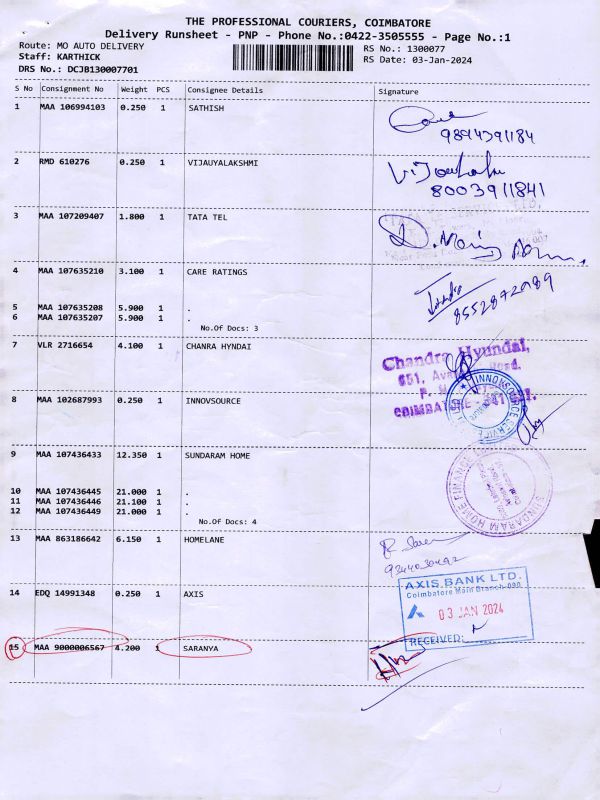 THE PROFESSIONAL COURIERS, COIMBATORE
Delivery Runsheet - PNP - Phone No.:0422-3505555 - Page No.:1
Route: MO AUTO DELIVERY
RS No.: 1300077
Staff: KARTHICK
RS Date: 03-Jan-2024
DRS No.: DCJB130007701
S No Consignment No Weight PCS Consignee Details Signature
1 MAA 106994103 0.250 1 SATHISH
9894391184
2 RMD 610276 0.250 1 VIJAUYALAKSHMI
8003911841
3 MAA 107209407 1.800 1 TATA TEL
4 MAA 107635210 3.100 1 CARE RATINGS
8552872989
5 MAA 107635208 5.900 1 .
6 MAA 107635207 5.900 1 .
No.Of Docs: 3
7 VLR 2716654 4.100 1 CHANRA HYNDAI
Chandra Hyundai,
COIMBATORE - 641
8 MAA 102687993 0.250 1 INNOVSOURCE
9 MAA 107436433 12.350 1 SUNDARAM HOME
SUNDARAM HOME FINANCE
10 MAA 107436445 21.000 1 .
11 MAA 107436446 21.100 1 .
12 MAA 107436449 21.000 1 .
No.Of Docs: 4
13 MAA 863186642 6.150 1 HOMELANE
14 EDQ 14991348 0.250 1 AXIS
AXIS BANK LTD.
Coimbatore Main Branch-090
03 JAN 2024
RECEIVED:
15 MAA 9000006567 4.200 1 SARANYA